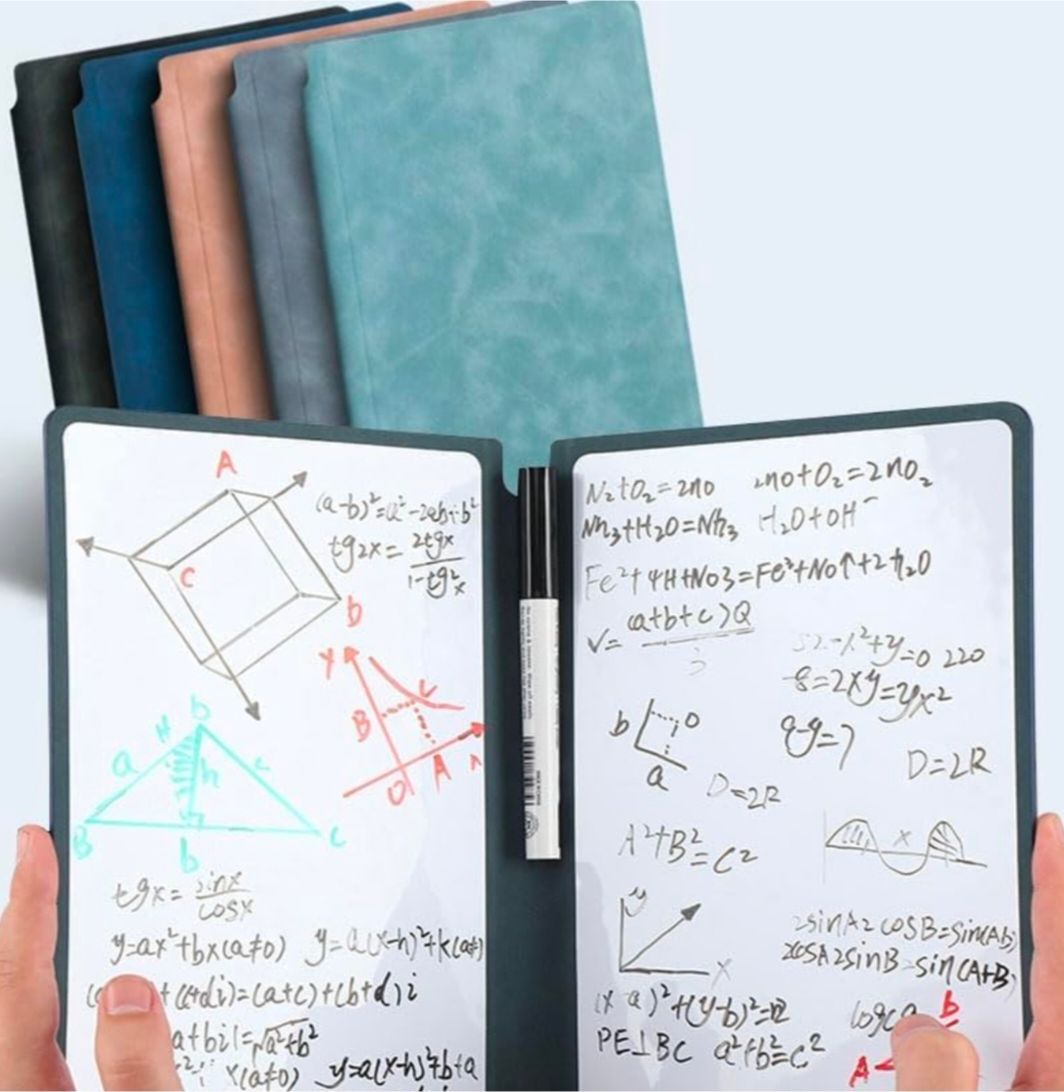 A
(a-b)²=a²-2ab+b²
tg2x=2tgx
1-tg²x
C
b
y
B
C
O
A
x
b
H
a
h
c
B
b
C
tgx=sinx
cosx
y=ax²+bx(a≠0) y=a(x-h)²+k(a≠
+(c+di)=(a+c)+(b+d)i
a+bi|=√a²+b²
x(a≠0) y=a(x-h)²+b+a
N₂+O₂=2no 2no+O₂=2no₂
Nh₃+H₂O=Nh₃ H₂O+OH⁻
Fe²+4H+No3=Fe³+No↑+2h₂O
V=(a+b+c)Q
3
52-x²+y=0 220
8=2xy=yx²
8-y=7
b
o
a
D=2R
D=2R
A²+B²=C²
x
y
x
2sinA2cosB=sin(Ab)
2cosA2sinB=sin(A+B)
(x-a)²+(y-b)²=
PE⊥BC a²+b²=c²
logca
b
A